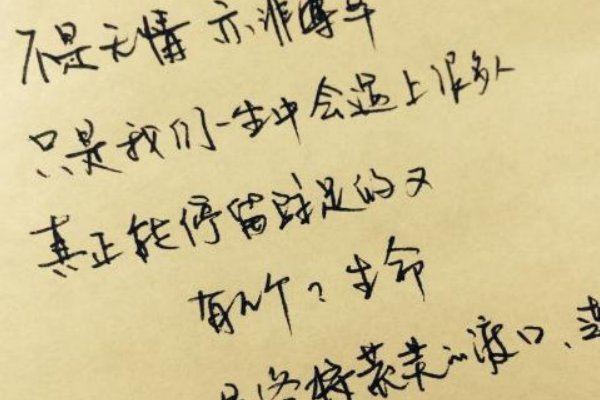 不是无情 亦非薄幸
只是我们一生中会遇上很多人
真正能停留驻足的又
有几个？生命
是终将荒芜的渡口、